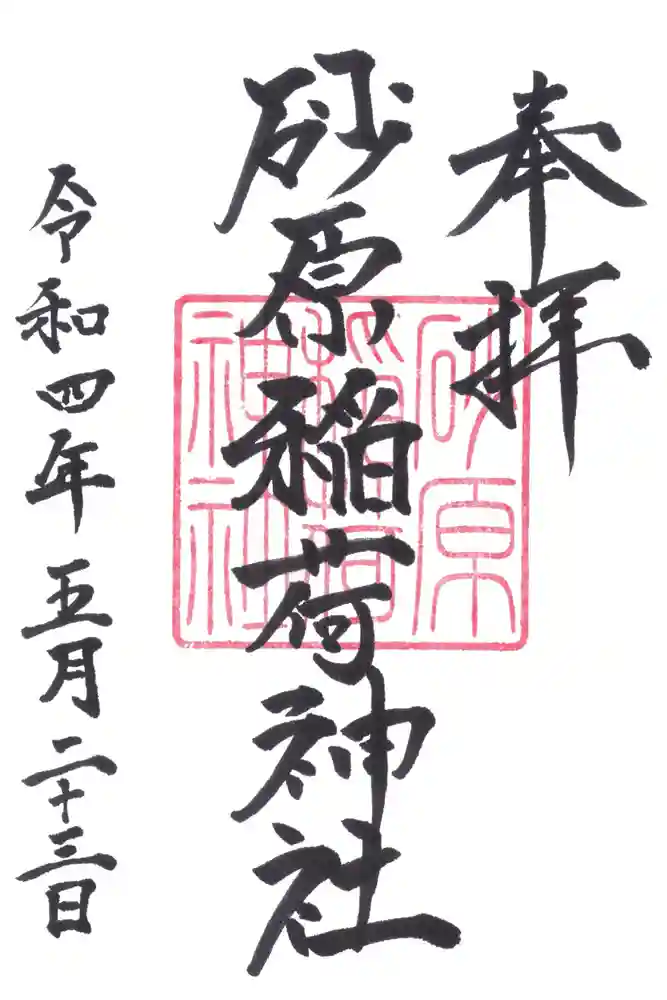 奉拝
砂原稲荷神社
令和四年五月二十三日
砂原
稲荷
神社